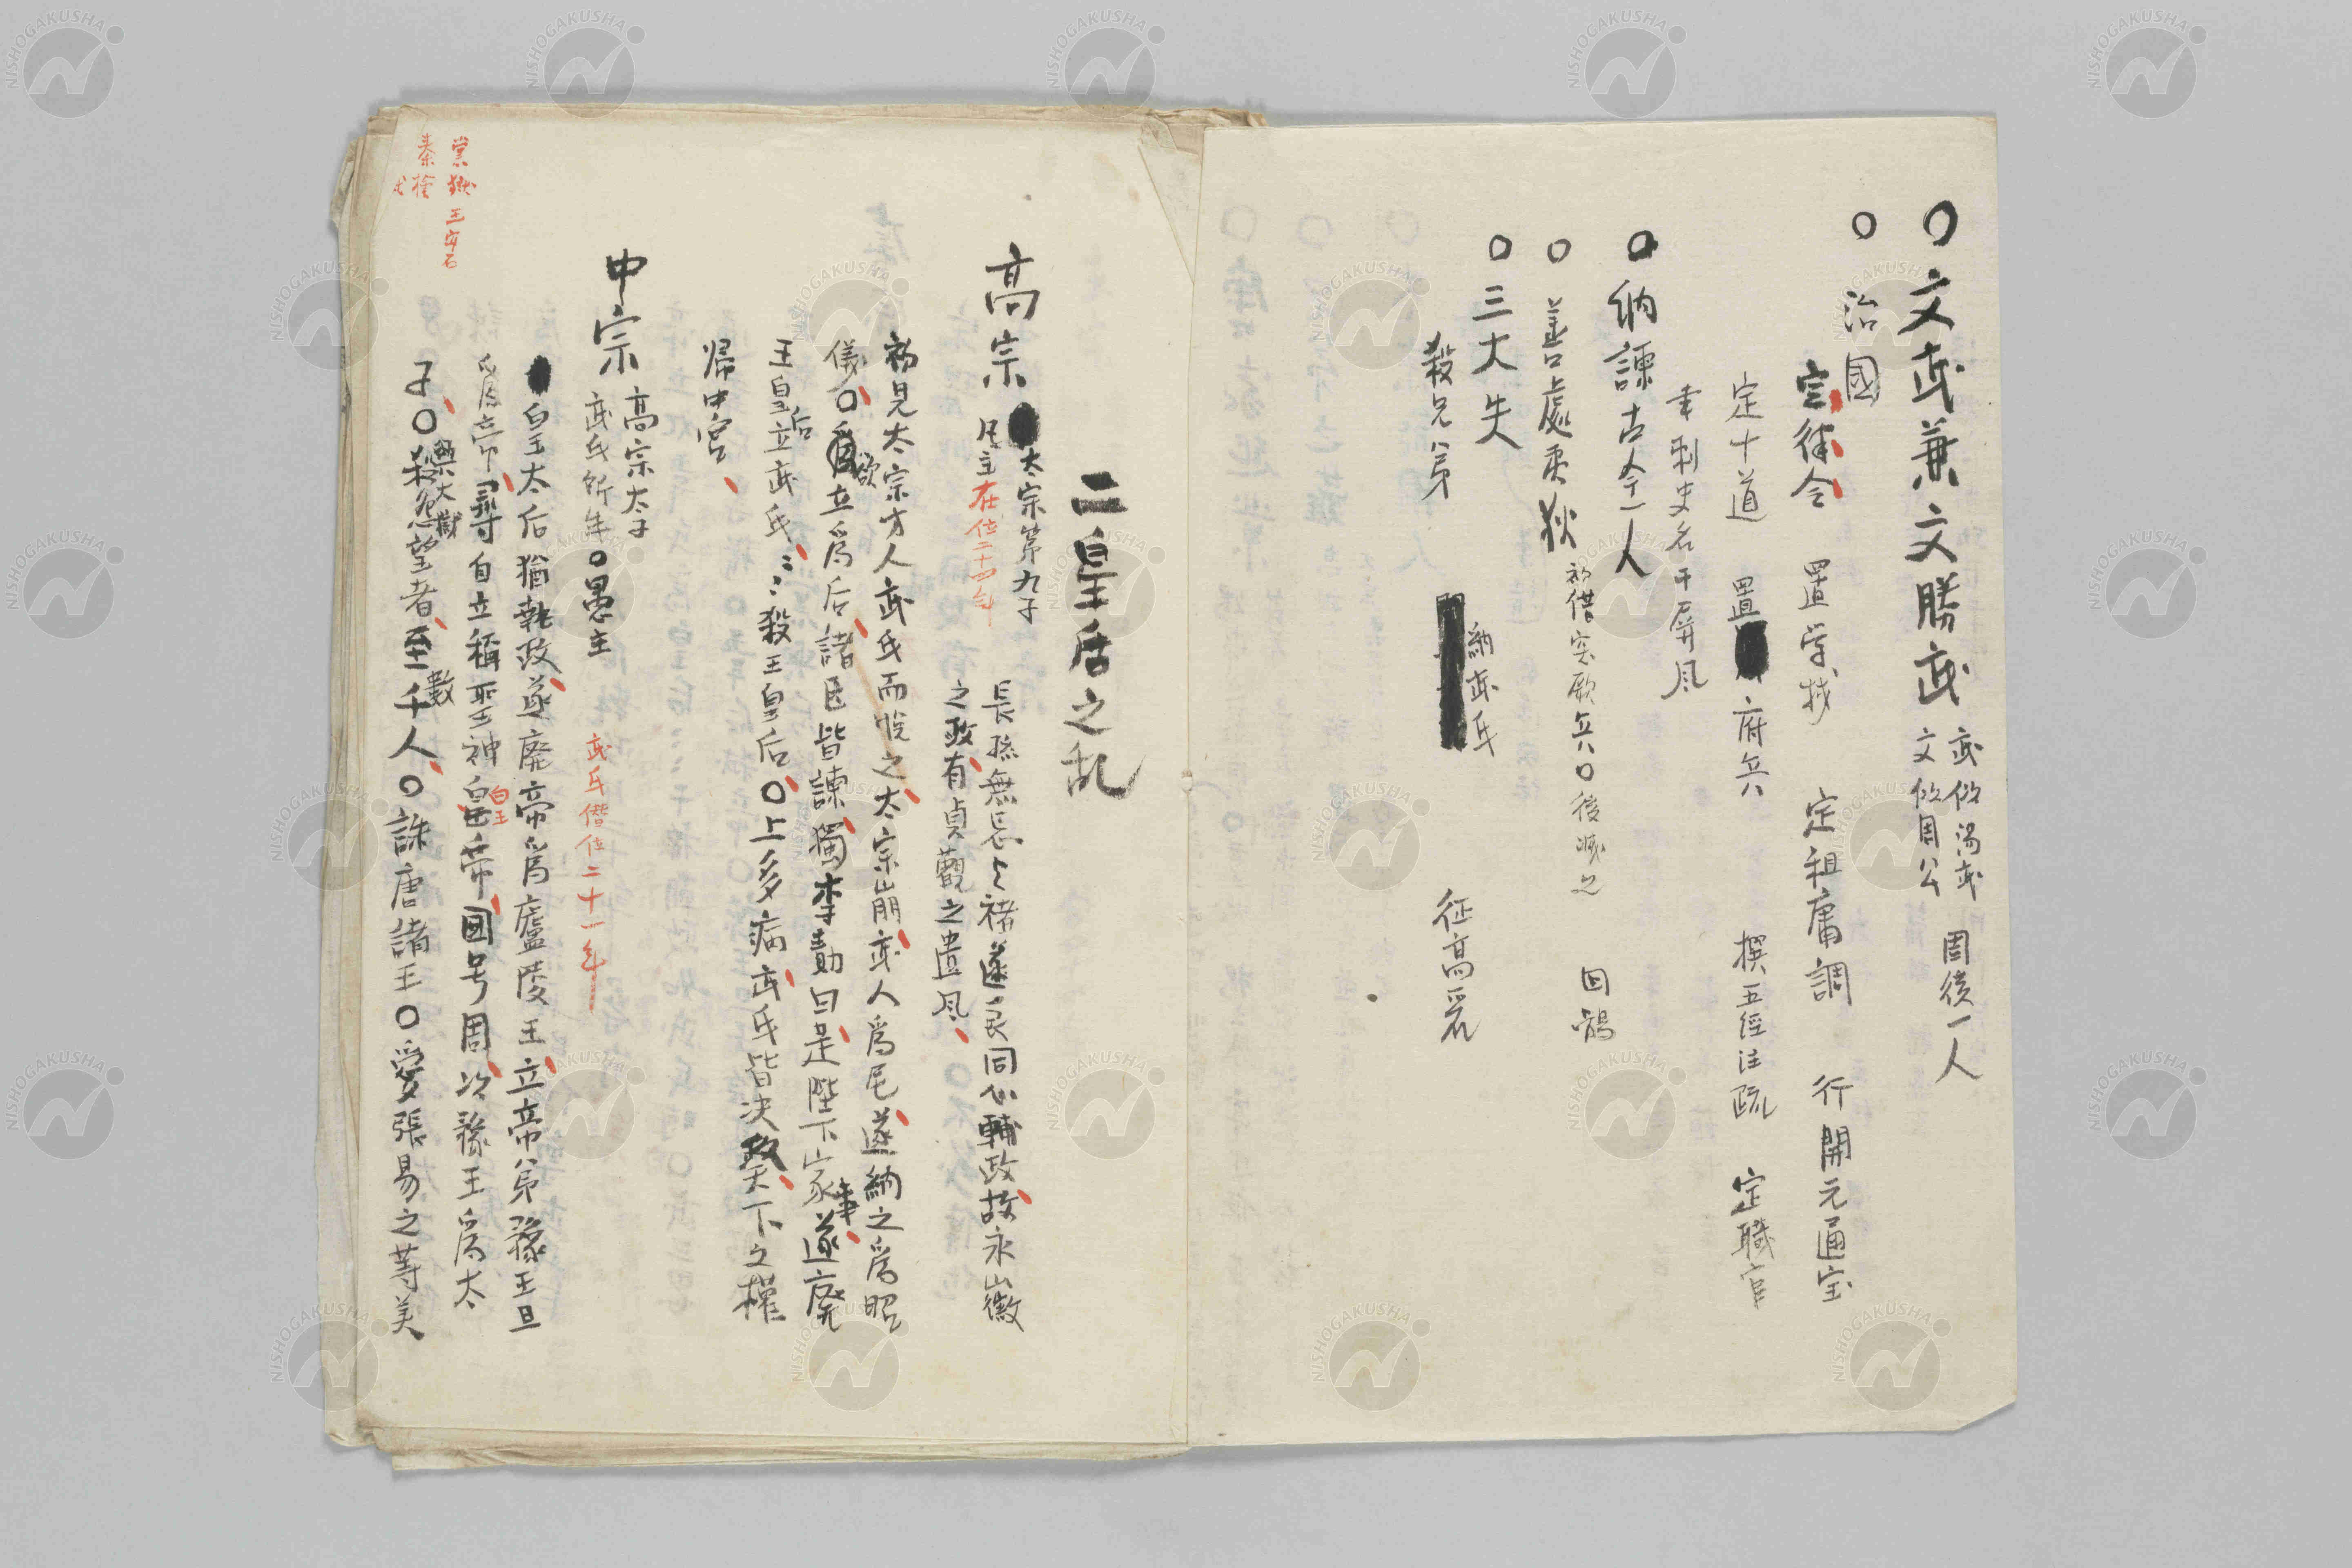 ○文武兼文勝武
武倣湯武
文倣周公
周後一人
○治國
定律令 置学校 定租庸調 行開元通宝
定十道 置府兵 撰五經注疏 定職官
書刺史名于屏風
○納諫古今一人
○善處夷狄 初借突厥兵○後滅之 回鶻
○三大失
殺兄弟 納武氏 征高麗
二皇后之乱
高宗
太宗第九子
凡主在位三十四年
長孫無忌与褚遂良同心輔政故永徽
之政有貞觀之遺風
初見太宗方人武氏而悅之太宗崩武人爲尼遂納之爲昭
儀○欲立爲后諸臣皆諫獨李勣曰是陛下家事遂廃
王皇后立武氏殺王皇后○上多病武氏皆決政天下之權
帰中宮
中宗
高宗太子
武氏所生○愚主
武氏僭位二十一年
皇太后猶執政遂廃帝爲廬陵王立帝弟豫王旦
爲帝尋自立稱聖神皇帝国号周以豫王爲太
子○興大獄殺怨望者至数千人○誅唐諸王○愛張易之等美
党獄 王安石
秦檜
NISHOGAKUSHA